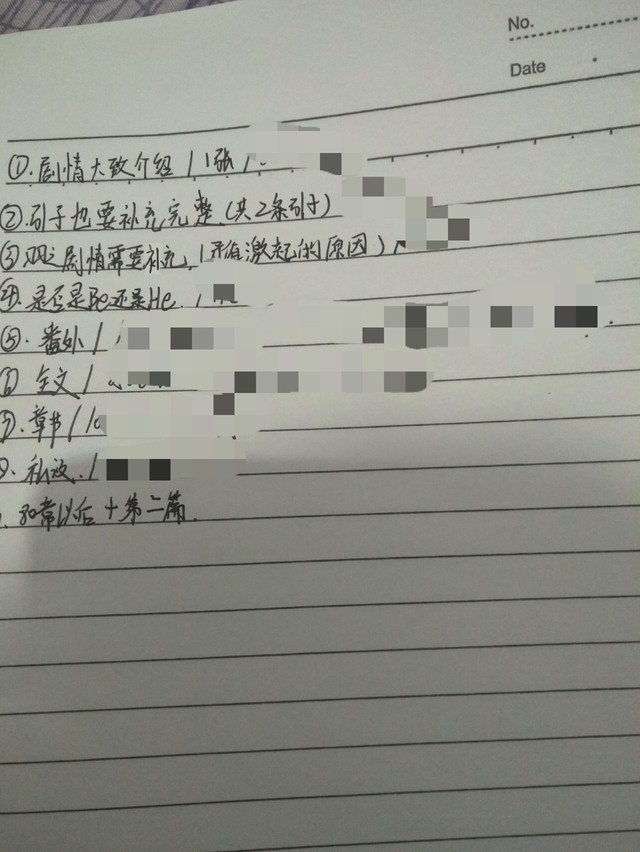 No.
Date
①.剧情大致介绍/1张/
②.引子也要补充完整(共2条引子)
③剧情需要补充,激起的原因)
④.是否是Be还是He.
⑤.番外/
⑥全文/
⑦.章节/
私设./
以后+第二篇.